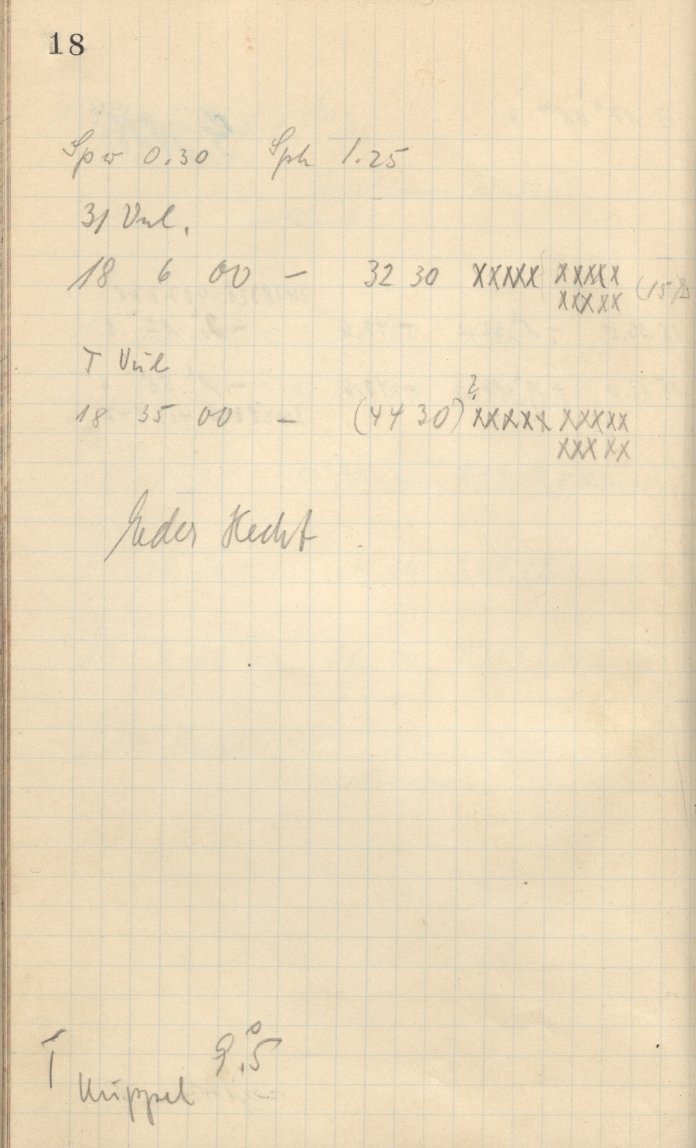 18
Spw 0.30 Sph 1.25
31 Vul.
18 6 00 — 32 30 XXXXX XXXXX (15)
XXXXX
T Vul
?
18 35 00 — (44 30) XXXXX XXXXX
XXXXX
Hecht
9.5°
T Kuppel